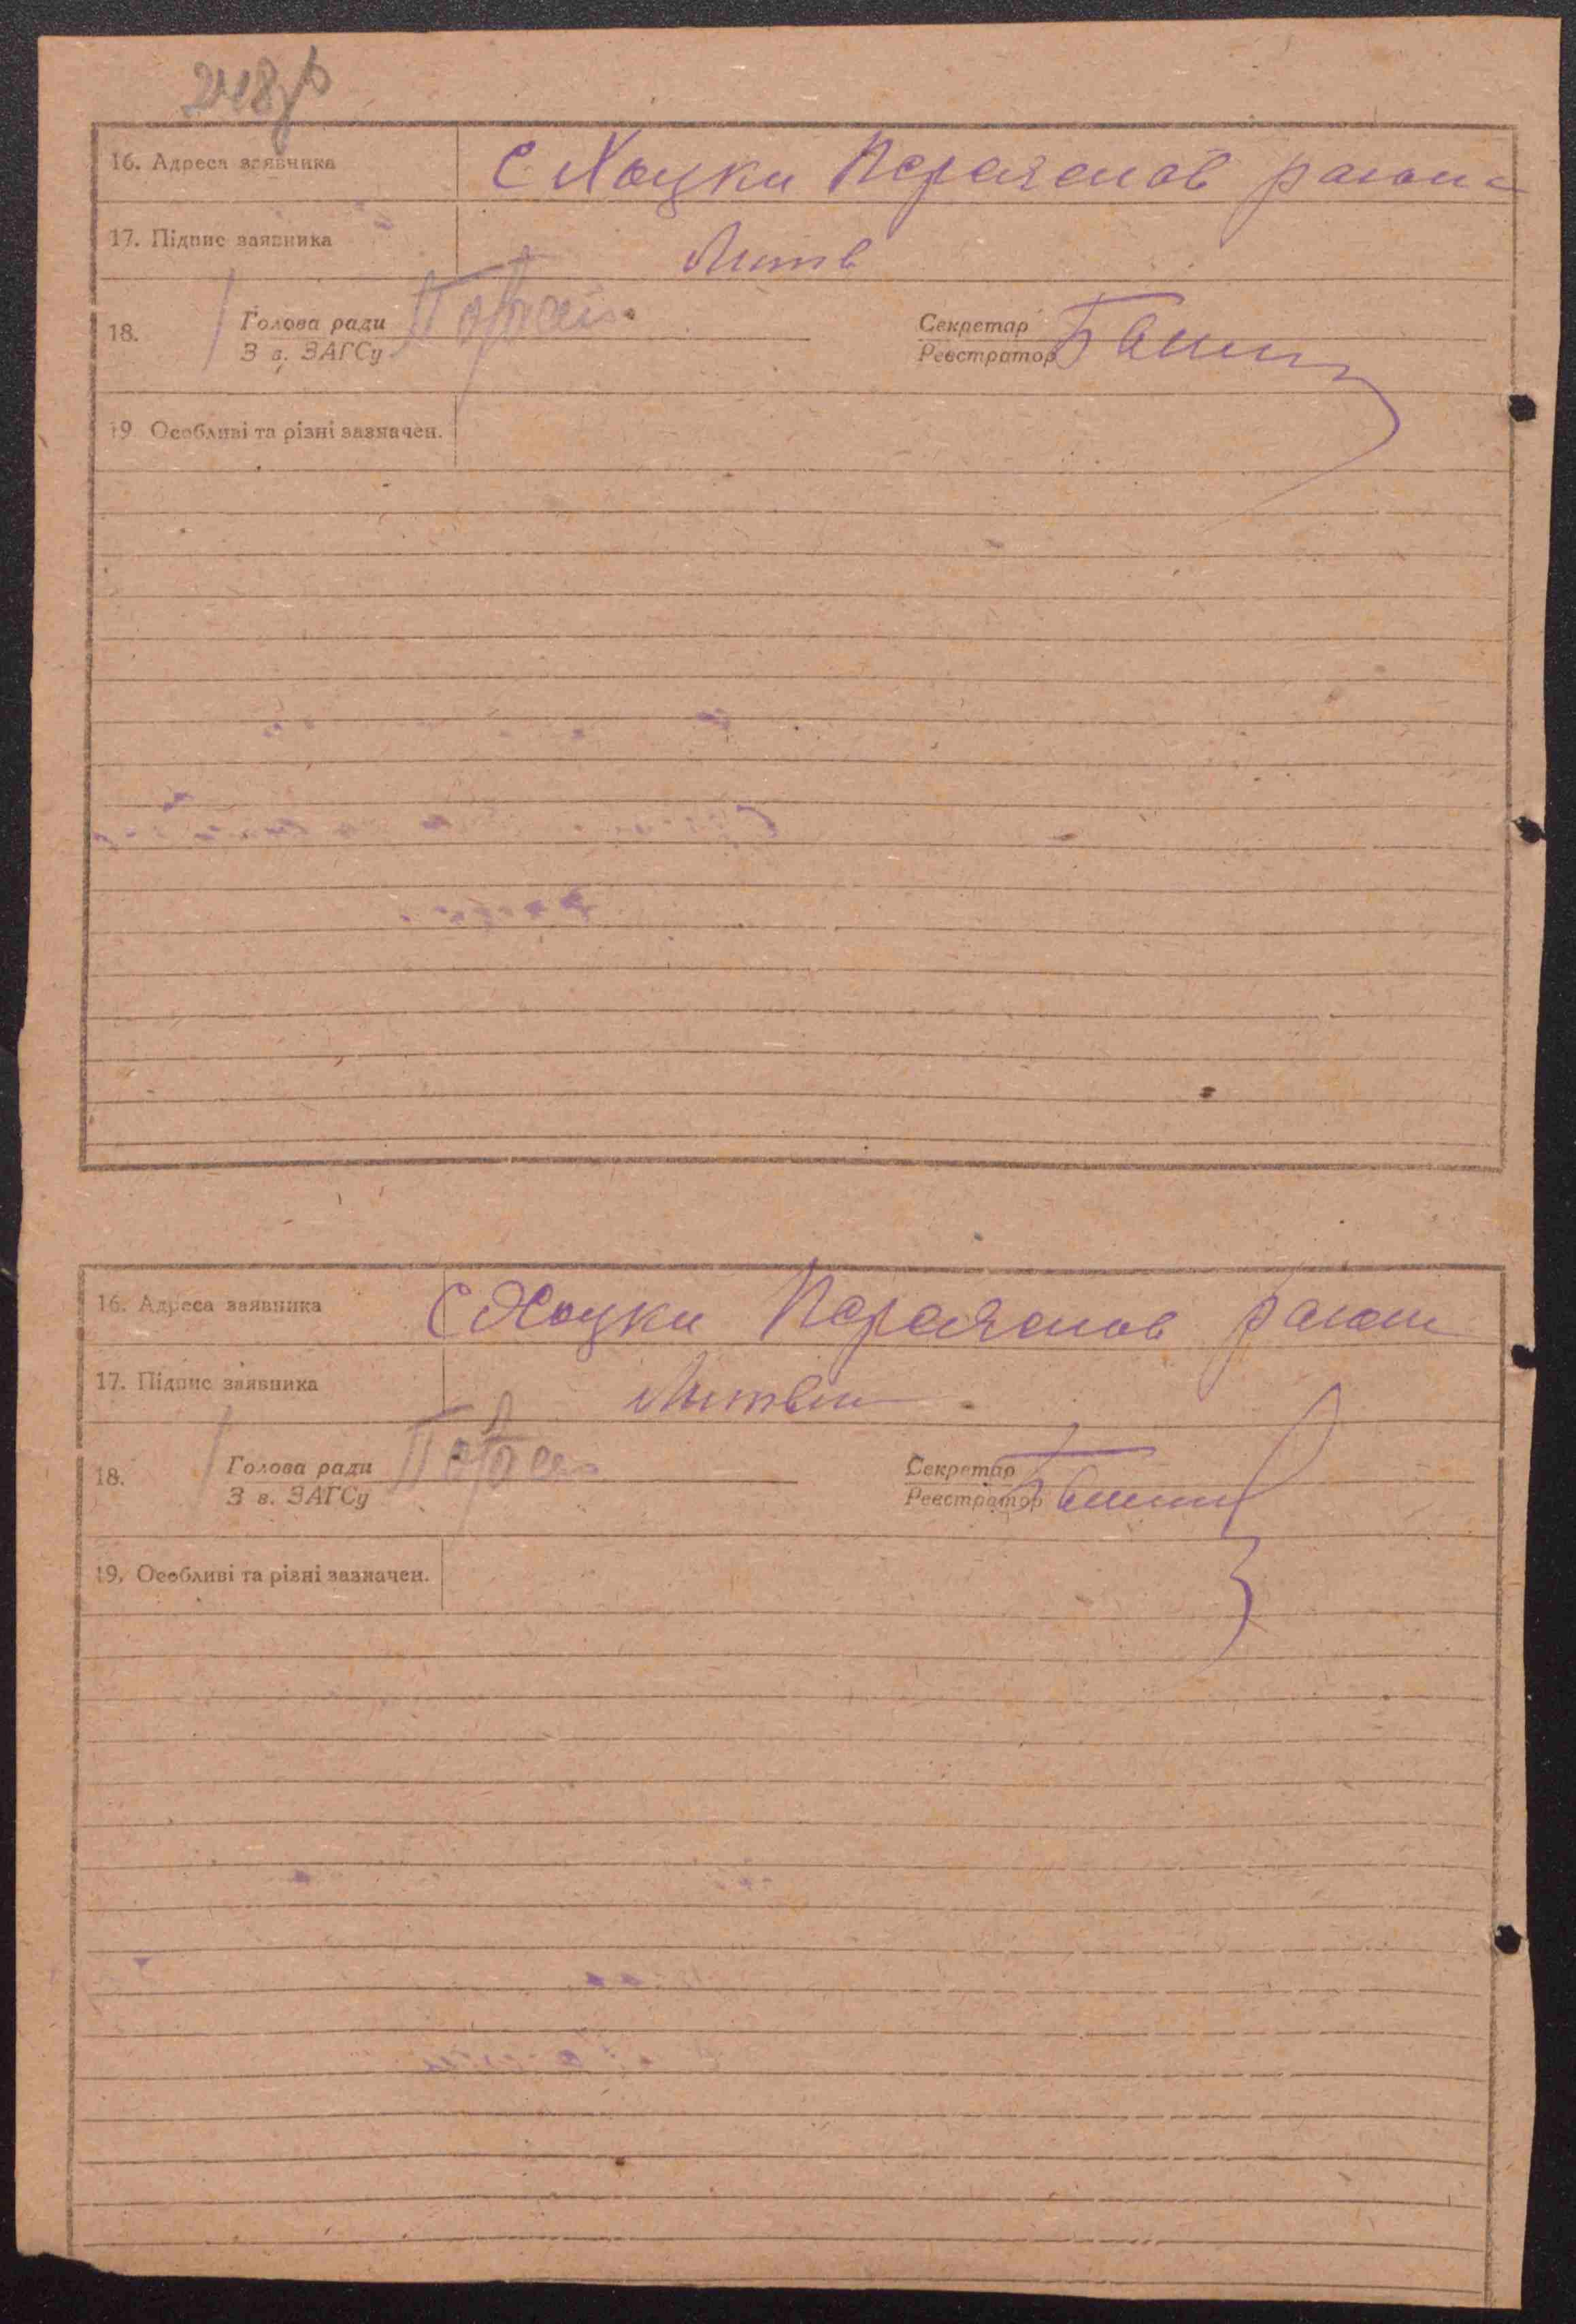 16. Адреса заявника С Хоцки Переяслов район
17. Підпис заявника Литв
18. Голова ради Секретар
З в. ЗАГСу Реєстратор
19 Особливі та різні зазначен.
16. Адреса заявника С Хоцки Переяслов район
17. Підпис заявника Литвин
18. Голова ради Секретар
З в. ЗАГСу Реєстратор
19. Особливі та різні зазначен.